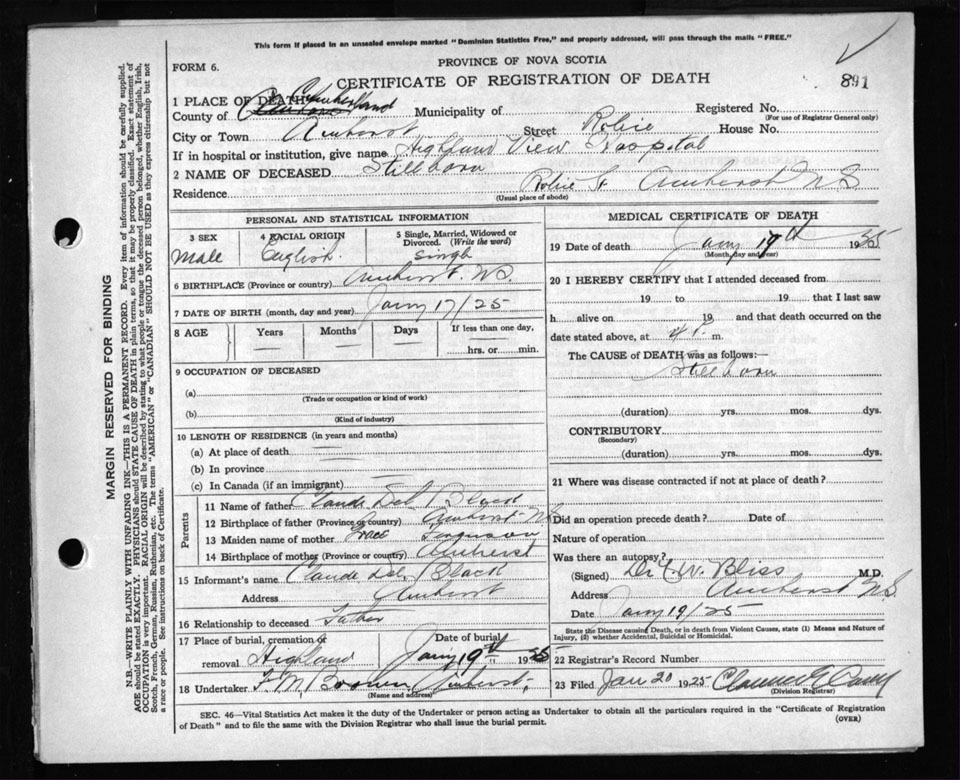 This form if placed in an unsealed envelope marked "Dominion Statistics Free," and properly addressed, will pass through the mails "FREE."
PROVINCE OF NOVA SCOTIA
FORM 6.
CERTIFICATE OF REGISTRATION OF DEATH
891
1 PLACE OF DEATH
County of Cumberland Municipality of Registered No.
(For use of Registrar General only)
City or Town Amherst Street Robie House No.
If in hospital or institution, give name Highland View Hospital
2 NAME OF DECEASED Stillborn
Residence Robie St Amherst NS
(Usual place of abode)
PERSONAL AND STATISTICAL INFORMATION
3 SEX 4 RACIAL ORIGIN 5 Single, Married, Widowed or Divorced. (Write the word)
Male English single
6 BIRTHPLACE (Province or country) Amherst, NS.
7 DATE OF BIRTH (month, day and year) Jany 17/25
8 AGE Years Months Days If less than one day,
hrs. or min.
9 OCCUPATION OF DECEASED
(a)
(Trade or occupation or kind of work)
(b)
(Kind of industry)
10 LENGTH OF RESIDENCE (in years and months)
(a) At place of death
(b) In province
(c) In Canada (if an immigrant)
Parents
11 Name of father Claude Del Black
12 Birthplace of father (Province or country) Amherst NS
13 Maiden name of mother Grace Ferguson
14 Birthplace of mother (Province or country) Amherst
15 Informant's name Claude Del. Black
Address Amherst
16 Relationship to deceased Father
17 Place of burial, cremation or removal Highland Date of burial Jany 19th 1925
18 Undertaker F. M. Brown, Amherst,
(Name and address)
MEDICAL CERTIFICATE OF DEATH
19 Date of death Jany 19th 1925
(Month, day and year)
20 I HEREBY CERTIFY that I attended deceased from
19 to 19 that I last saw
h alive on 19 and that death occurred on the
date stated above, at m.
The CAUSE of DEATH was as follows:—
Stillborn
(duration) yrs. mos. dys.
CONTRIBUTORY
(Secondary)
(duration) yrs. mos. dys.
21 Where was disease contracted if not at place of death?
Did an operation precede death? Date of
Nature of operation
Was there an autopsy?
(Signed) Dr C. W. Bliss M.D.
Address Amherst NS.
Date Jany 19/25
State the Disease causing Death, or in death from Violent Causes, state (1) Means and Nature of
Injury, (2) whether Accidental, Suicidal or Homicidal.
22 Registrar's Record Number
23 Filed Jan 20 1925
(Division Registrar)
SEC. 46—Vital Statistics Act makes it the duty of the Undertaker or person acting as Undertaker to obtain all the particulars required in the "Certificate of Registration
of Death" and to file the same with the Division Registrar who shall issue the burial permit.
(OVER)
MARGIN RESERVED FOR BINDING
N.B.—WRITE PLAINLY WITH UNFADING INK—THIS IS A PERMANENT RECORD. Every item of information should be carefully supplied.
AGE should be stated EXACTLY. PHYSICIANS should STATE CAUSE OF DEATH in plain terms, so that it may be properly classified. Exact statement of
OCCUPATION is very important. RACIAL ORIGIN will be described by stating to what people or tongue the deceased person belonged, whether English, Irish,
Scotch, French, German, Russian, Ruthenian, etc. The terms "AMERICAN" or "CANADIAN" SHOULD NOT BE USED as they express citizenship but not
a race or people. See instructions on back of Certificate.